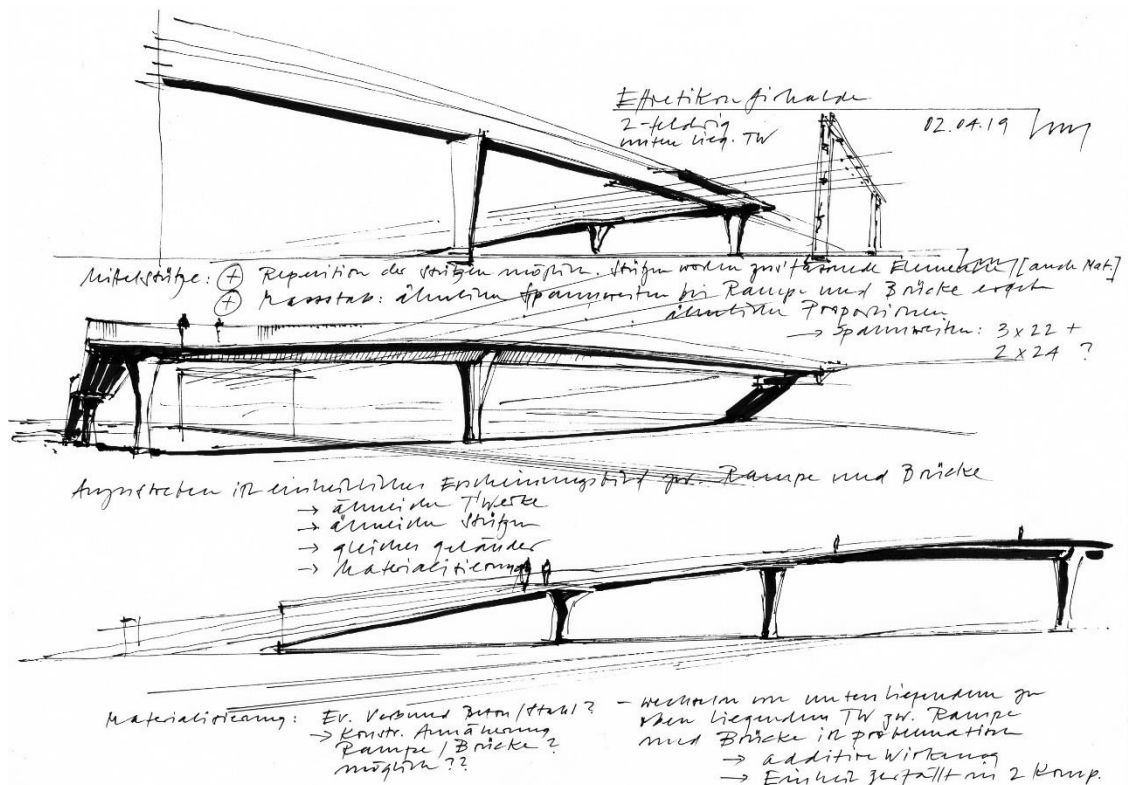 Effretikon Girhalde
2-feldrig
unten lieg. TW
02.04.19
Mittelstütze: + Repetition der Stützen möglich. Stützen werden zusätzlich Elemente [auch Mat.]
+ Massstab: ähnliche Spannweiten bei Rampe und Brücke ergibt
ähnliche Proportionen
→ Spannweiten: 3 x 22 +
2 x 24 ?
Anzustreben ist einheitliches Erscheinungsbild zw. Rampe und Brücke
→ ähnliche TWerke
→ ähnliche Stützen
→ gleiches Geländer
→ Materialisierung
Materialisierung: Ev. Verbund Beton/Stahl ?
→ Konstr. Annäherung
Rampe / Brücke ?
möglich ??
- wechseln von unten liegendem zu
oben liegendem TW zw. Rampe
und Brücke ist problematisch
→ additive Wirkung
→ Einheit zerfällt in 2 Komp.